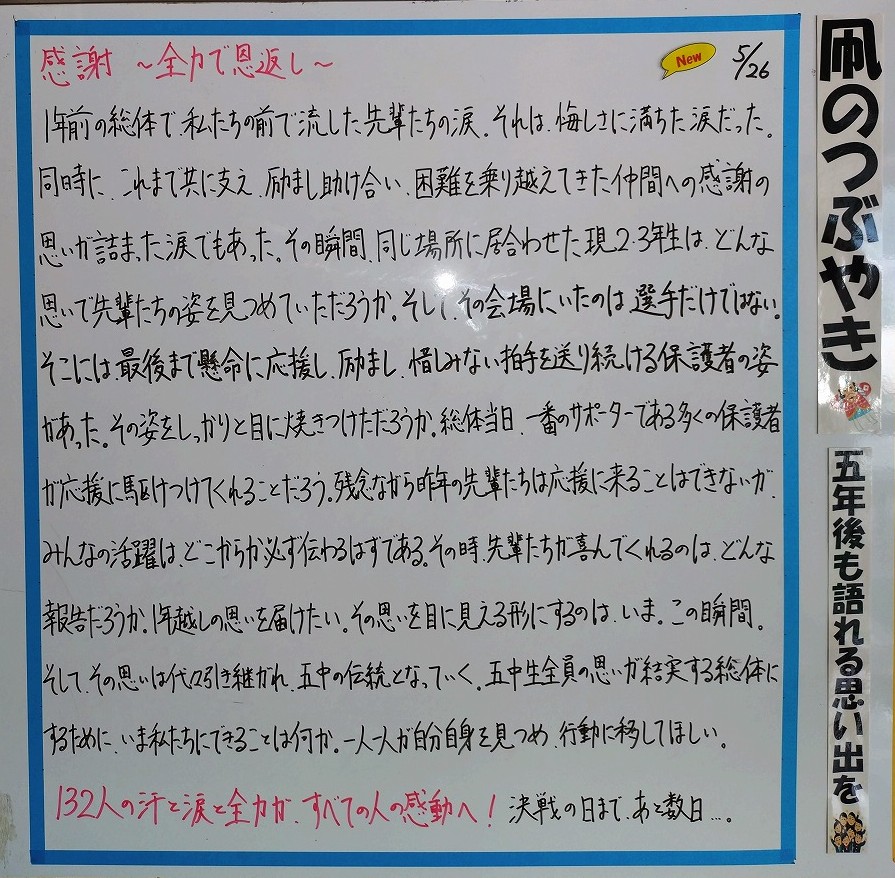 感謝 〜全力で恩返し〜
New
5/26
1年前の総体で、私たちの前で流した先輩たちの涙。それは、悔しさに満ちた涙だった。
同時に、これまで共に支え、励まし助け合い、困難を乗り越えてきた仲間への感謝の
思いが詰まった涙でもあった。その瞬間、同じ場所に居合わせた現2・3年生は、どんな
思いで先輩たちの姿を見つめていただろうか。そして、その会場にいたのは選手だけではない。
そこには、最後まで懸命に応援し、励まし、惜しみない拍手を送り続ける保護者の姿
があった。その姿をしっかりと目に焼きつけただろうか。総体当日、一番のサポーターである多くの保護者
が応援に駆けつけてくれることだろう。残念ながら昨年の先輩たちは応援に来ることはできないが、
みんなの活躍は、どこからか必ず伝わるはずである。その時、先輩たちが喜んでくれるのは、どんな
報告だろうか。1年越しの思いを届けたい。その思いを目に見える形にするのは、いま。この瞬間。
そして、その思いは代々引き継がれ、五中の伝統となっていく。五中生全員の思いが結実する総体に
するために、いま私たちにできることは何か。一人一人が自分自身を見つめ、行動に移してほしい。
132人の汗と涙と全力が、すべての人の感動へ! 決戦の日まで、あと数日…。
凧のつぶやき
五年後も語れる思い出を